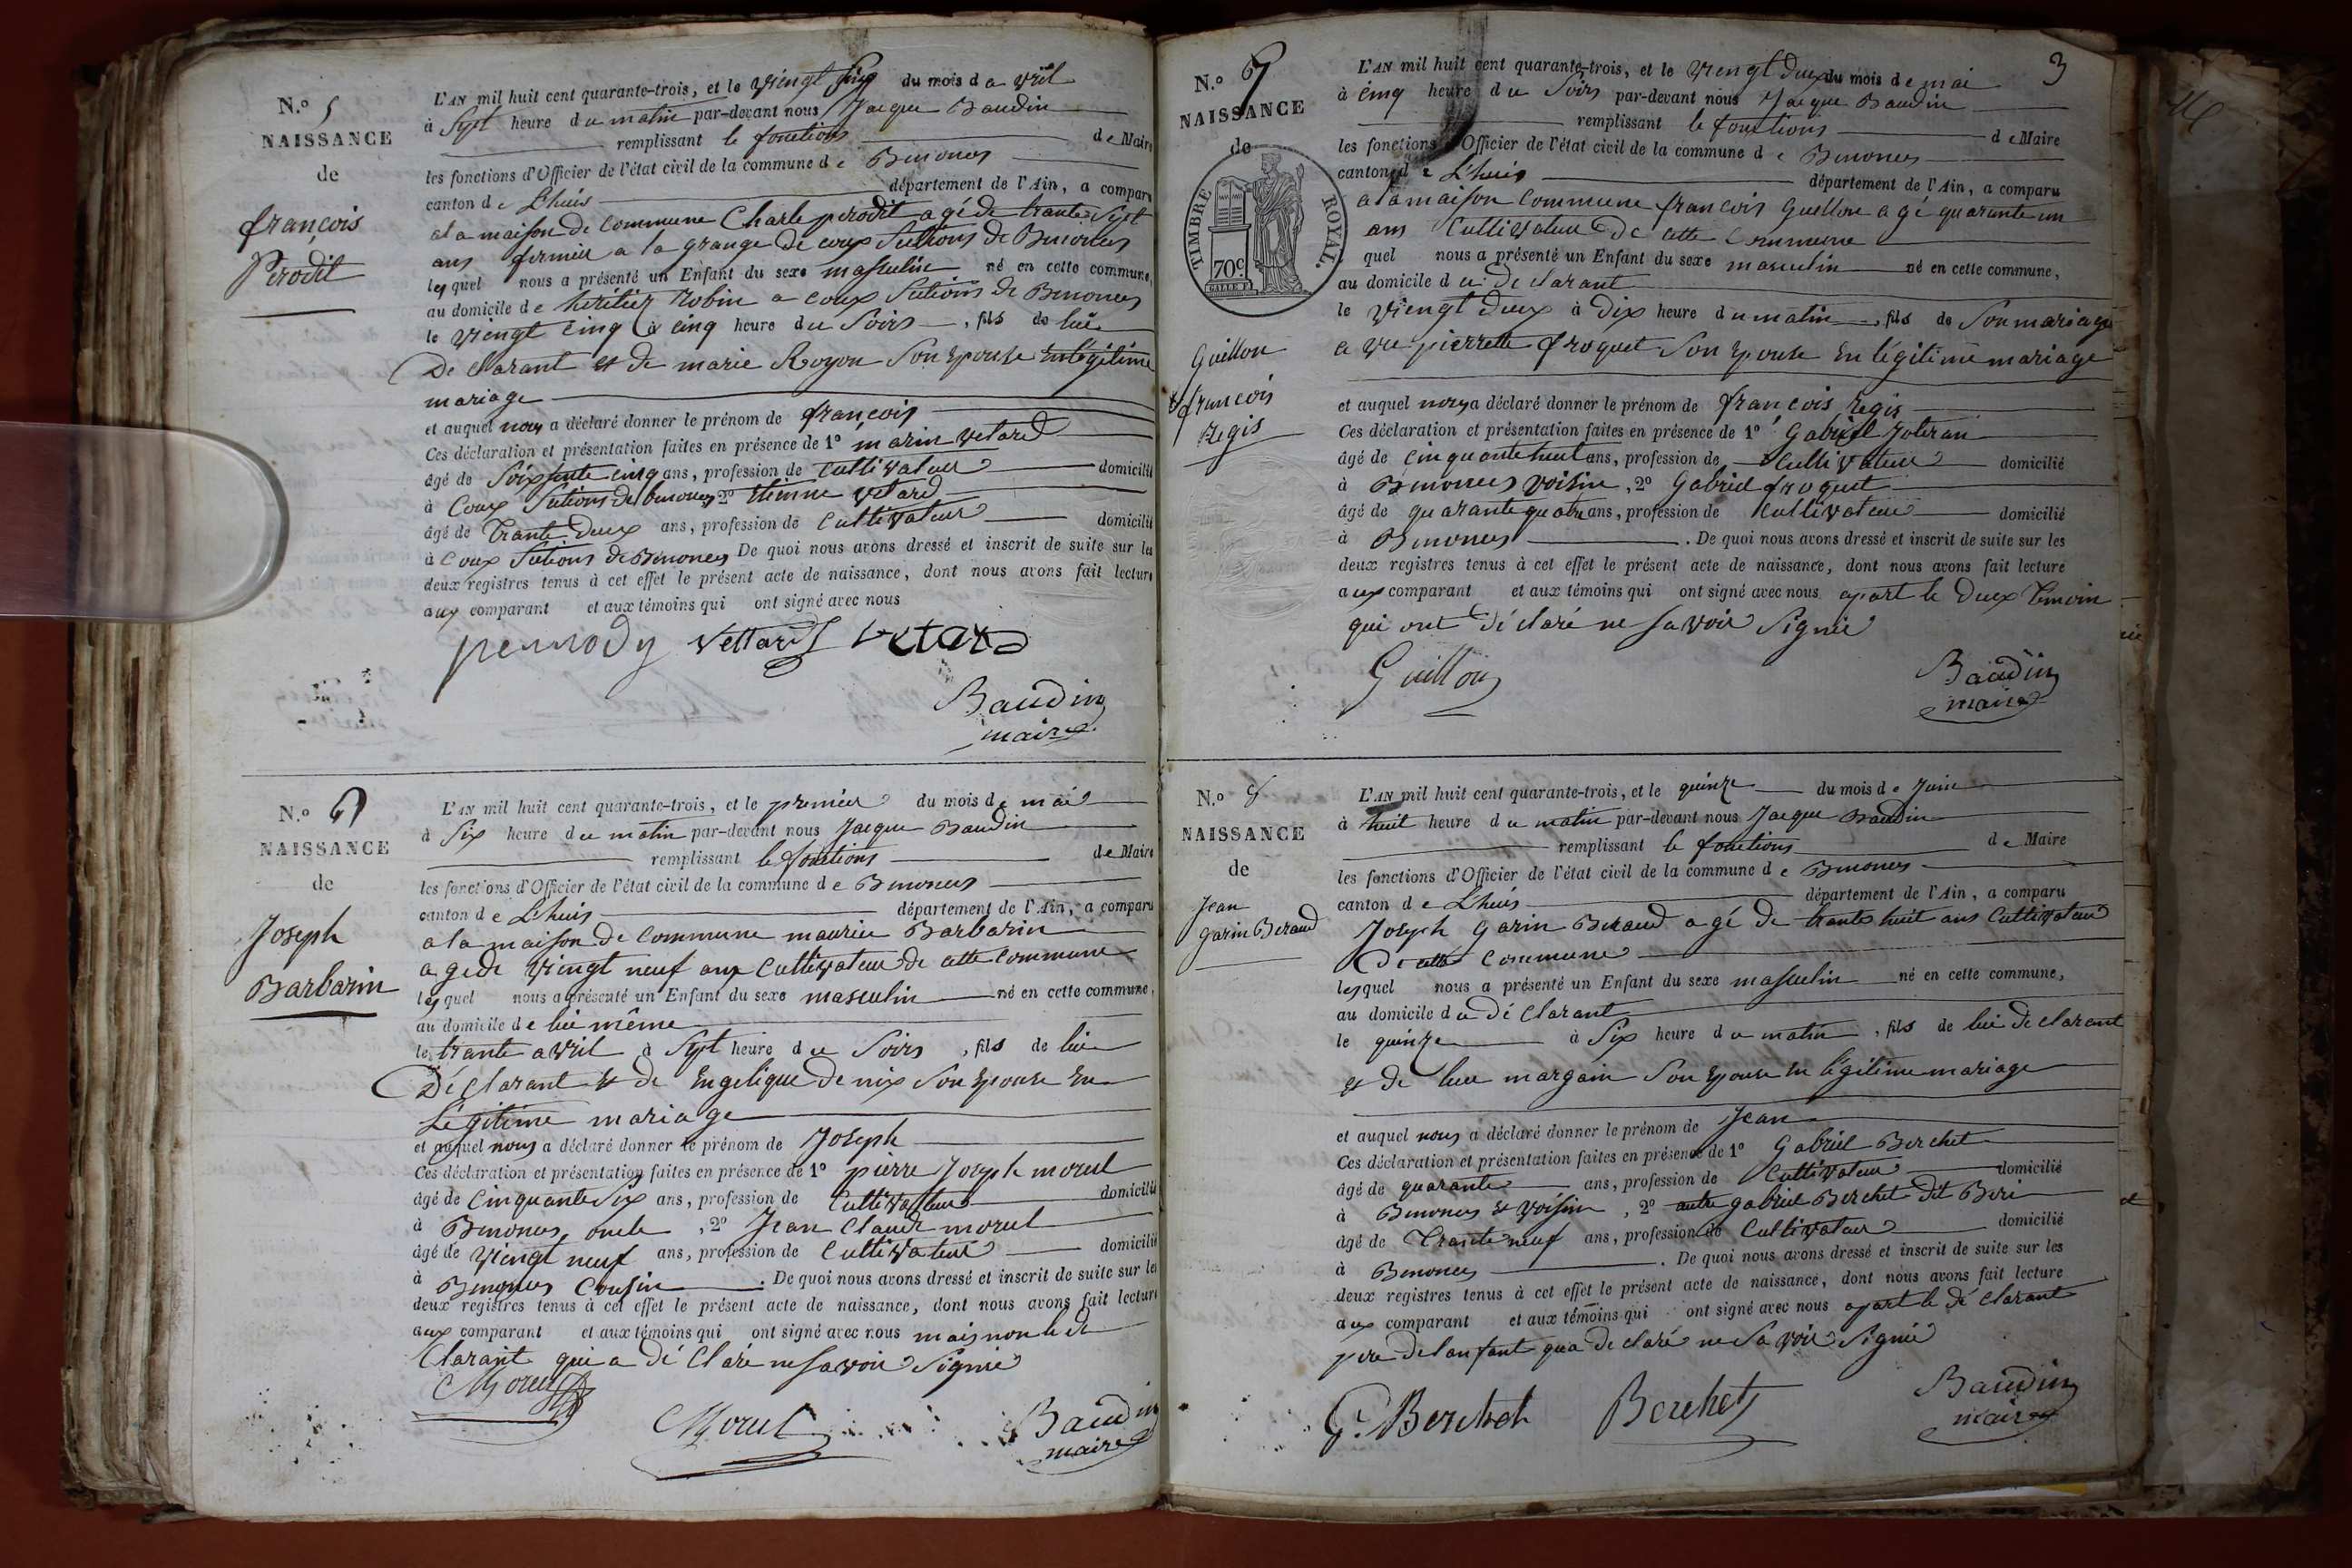 N.º 5
NAISSANCE
de
françois
Pérodit
L'AN mil huit cent quarante-trois, et le viengt sinq du mois d avril
à Sept heure du matin par-devant nous Jacque Baudin
remplissant le fonctions de Maire
les fonctions d'Officier de l'état civil de la commune de Benonces
canton de L'huis département de l'Ain, a comparu
a la maison de commune Charle perodit agé de trante Sept
ans fermier a la grange de coux Sections de Benonces
lesquel nous a présenté un Enfant du sexe masculin né en cette commune,
au domicile de heritiez Robin a coux Sections de Benonces
le viengt cinq à cinq heure du Soirs, fils de lui
Déclarant et de marie Royon Son Epouse En légitime
mariage
et auquel nous a déclaré donner le prénom de françois
Ces déclaration et présentation faites en présence de 1º marin vetard
âgé de Soixsente cinq ans, profession de cultivateur domicilié
à Coux Sections de benonces 2º Etienne vetard
âgé de Trante Deux ans, profession de cultivateur domicilié
à Coux Sections de Benonces De quoi nous avons dressé et inscrit de suite sur les
deux registres tenus à cet effet le présent acte de naissance, dont nous avons fait lecture
aux comparant et aux témoins qui ont signé avec nous
perrody Vettard vetard
Baudin
maire
N.º 6
NAISSANCE
de
Joseph
Barbarin
L'AN mil huit cent quarante-trois, et le premier du mois de mai
à Six heure du matin par-devant nous Jacque Baudin
remplissant le fonctions de Maire
les fonctions d'Officier de l'état civil de la commune de Benonces
canton de L'huis département de l'Ain, a comparu
a la maison de commune maurice Barbarin
agede viengt neuf ans cultivateur de cette commune
lesquel nous a présenté un Enfant du sexe masculin né en cette commune,
au domicile de lui même
le trante avril à Sept heure du Soirs, fils de lui
Déclarant et de Engelique Denix Son Epouse En
Légitime mariage
et auquel nous a déclaré donner le prénom de Joseph
Ces déclaration et présentation faites en présence de 1º pierre Joseph morel
âgé de cinquante Six ans, profession de cultivateur domicilié
à Benonces, oncle, 2º Jean Claude morel
âgé de viengt neuf ans, profession de cultivateur domicilié
à Benonces Cousin. De quoi nous avons dressé et inscrit de suite sur les
deux registres tenus à cet effet le présent acte de naissance, dont nous avons fait lecture
aux comparant et aux témoins qui ont signé avec nous mais non le de
Clarant qui a déClaré ne Savoir Signié
Morel
Morel
Baudin
maire
3
N.º 7
NAISSANCE
de
TIMBRE ROYAL.
70c
Guillon
françois
Regis
L'AN mil huit cent quarante-trois, et le viengt Deux du mois de mai
à cinq heure du Soirs par-devant nous Jacque Baudin
remplissant le fonctions de Maire
les fonctions d'Officier de l'état civil de la commune de Benonces
canton de L'huis département de l'Ain, a comparu
a la maison commune francois Guillon agé quarante un
ans Cultivateur De cette commune
quel nous a présenté un Enfant du sexe masculin né en cette commune,
au domicile du Déclarant
le viengt Deux à Dix heure du matin, fils de Son mariage
avec pierrette froquet Son Epouse En légitime mariage
et auquel nous a déclaré donner le prénom de françois Regis
Ces déclaration et présentation faites en présence de 1º Gabriel
âgé de cinquante huit ans, profession de Cultivateur domicilié
à Benonces voisin, 2º Gabriel froquet
âgé de quarante quatre ans, profession de Cultivateur domicilié
à Benonces. De quoi nous avons dressé et inscrit de suite sur les
deux registres tenus à cet effet le présent acte de naissance, dont nous avons fait lecture
aux comparant et aux témoins qui ont signé avec nous apart le Deux Temoin
qui ont déclaré ne Savoir Signié
Guillon
Baudin
maire
N.º 8
NAISSANCE
de
Jean
Garin Beraud
L'AN mil huit cent quarante-trois, et le quinze du mois de Juin
à huit heure du matin par-devant nous Jacque Baudin
remplissant le fonctions de Maire
les fonctions d'Officier de l'état civil de la commune de Benonces
canton de L'huis département de l'Ain, a comparu
Joseph Garin Beraud agé de trante huit ans Cultivateur
De cette commune
lesquel nous a présenté un Enfant du sexe masculin né en cette commune,
au domicile du déClarant
le quinze à Six heure du matin, fils de lui declarent
et de margain Son Epouse En légitime mariage
et auquel nous a déclaré donner le prénom de Jean
Ces déclaration et présentation faites en présence de 1º Gabriel Berchet
âgé de quarante ans, profession de Cultivateur domicilié
à Benonces et voisin, 2º autre gabriel Berchet dit Beri
âgé de Trante neuf ans, profession de Cultivateur domicilié
à Benonces. De quoi nous avons dressé et inscrit de suite sur les
deux registres tenus à cet effet le présent acte de naissance, dont nous avons fait lecture
aux comparant et aux témoins qui ont signé avec nous apart le déclarant
pere de lanfant qua declaré ne Savoir Signié
G. Berchet Berchet
Baudin
maire